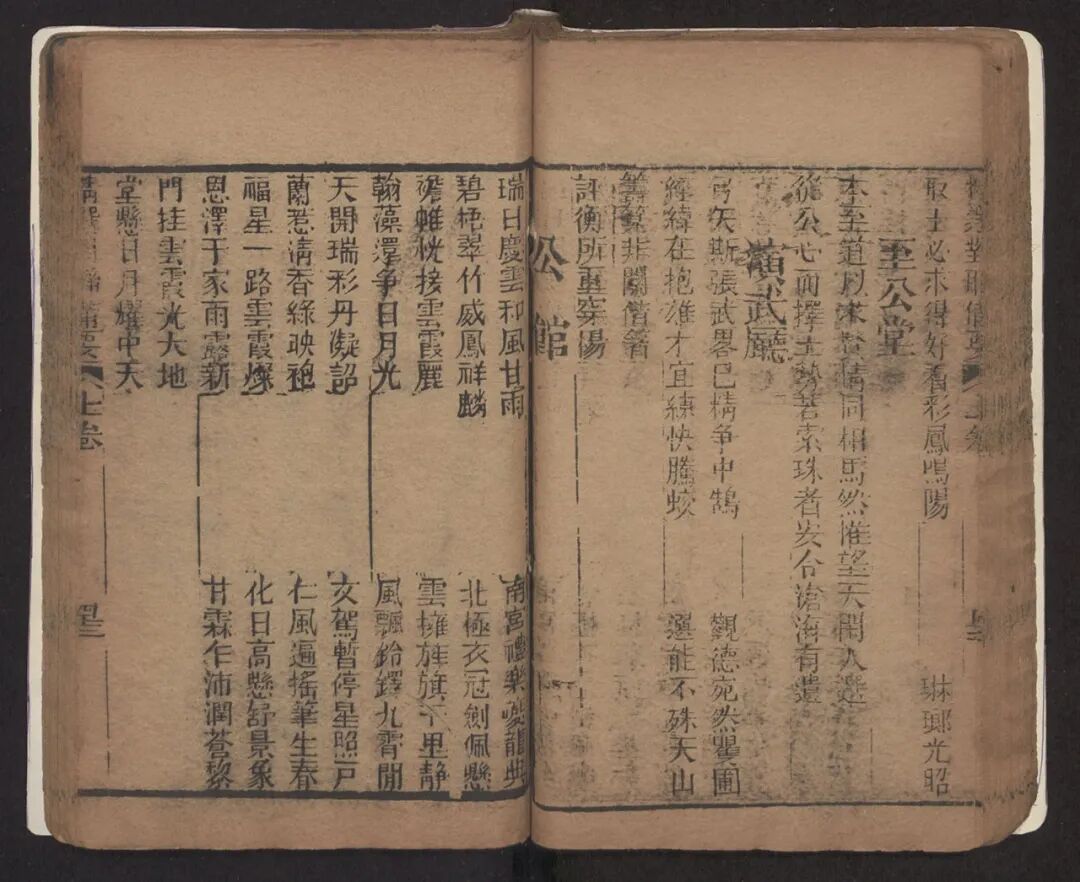 取士必求得好看彩鳳鳴陽　琳瑯光昭
至公堂
本至道以求賢情同相馬然惟望天閑入選
從公心而擇士勢若索珠者安令滄海有遺
演武廳
弓矢斯張武畧已精爭中鵠　觀德宛然矍圃
經緯在抱雄才宜練快騰蛟　選能不殊天山
籌算非關借箸
評衡所重穿楊
公館
瑞日慶雲和風甘雨　南宮禮樂夔龍典
碧梧翠竹威鳳祥麟　北極衣冠劍佩懸
襜帷恍接雲霞麗　雲擁旌旗千里靜
翰藻澤爭日月光　風飄鈴鐸九霄聞
天開瑞彩丹凝詔　文駕暫停星照戶
蘭惹清香綠映袍　仁風遍搖筆生春
福星一路雲霞燦　化日高懸舒景象
恩澤千家雨露新　甘霖乍沛潤蒼黎
門挂雲霞光大地
堂懸日月耀中天
上卷